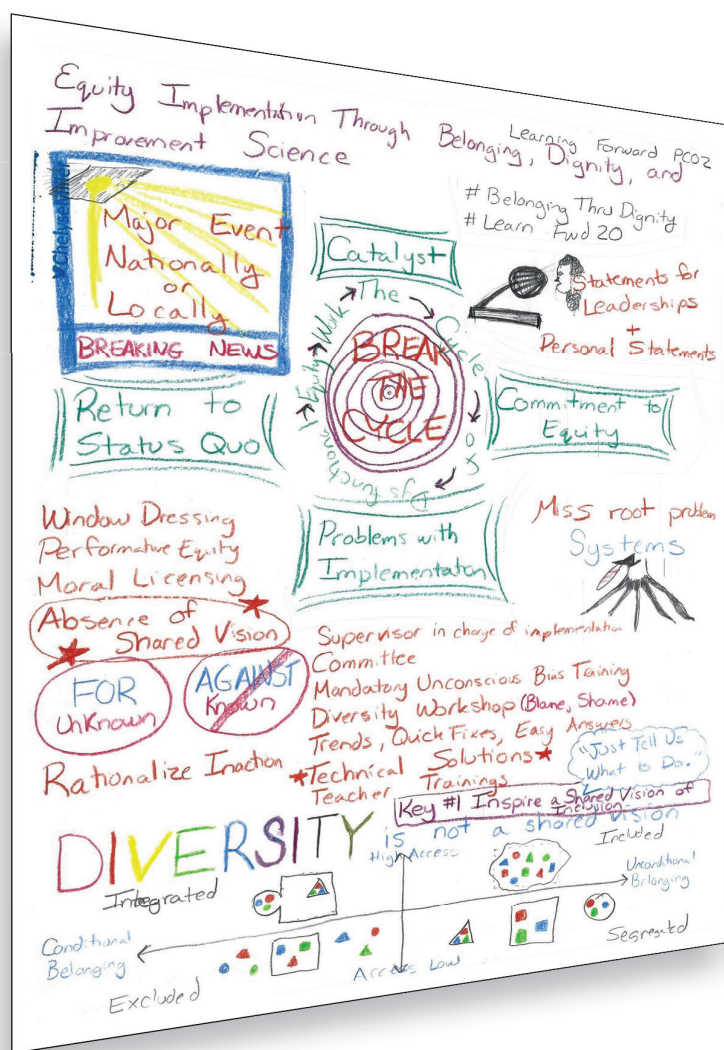 Equity Implementation Through Belonging, Dignity, and
Improvement Science
Learning Forward PC02
# Belonging Thru Dignity
# Learn Fwd 20
Major Event
Nationally
or
Locally
BREAKING NEWS
Catalyst
The Cycle of Dysfunctional Equity Work
BREAK
THE
CYCLE
Statements for
Leaderships
+
Personal Statements
Return to
Status Quo
Commitment to
Equity
Problems with
Implementation
Miss root problem
Systems
Window Dressing
Performative Equity
Moral Licensing
Absence of
Shared Vision
FOR
UnKnown
AGAINST
Known
Rationalize Inaction
Supervisor in charge of implementation
Committee
Mandatory Unconscious Bias Training
Diversity Workshop (Blame, Shame)
Trends, Quick Fixes, Easy Answers
Technical Solutions
Teacher Trainings
"Just Tell Us
What to Do."
Key #1 Inspire a Shared Vision of
Inclusion
DIVERSITY is not a shared vision
High Access
Included
Integrated
Unconditional
Belonging
Conditional
Belonging
Segregated
Access Low
Excluded